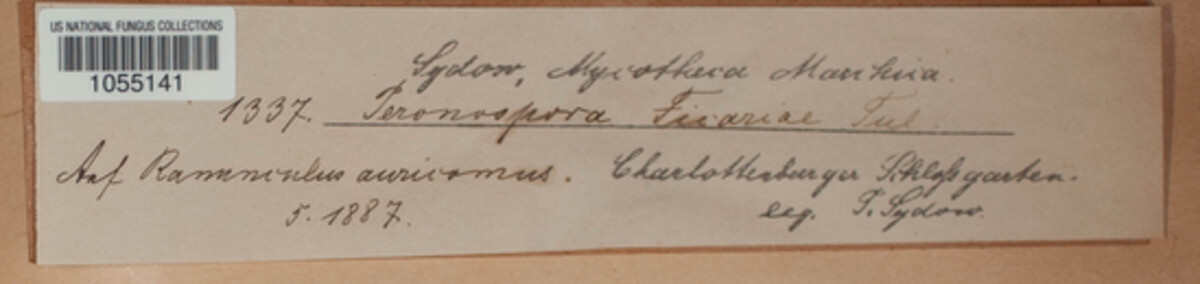 US NATIONAL FUNGUS COLLECTIONS
1055141
Sydow, Mycotheca Marchica.
1337. Peronospora Ficariae Tul.
Auf Ranunculus auricomus. Charlottenburger Schloßgarten.
5. 1887. leg. P. Sydow.